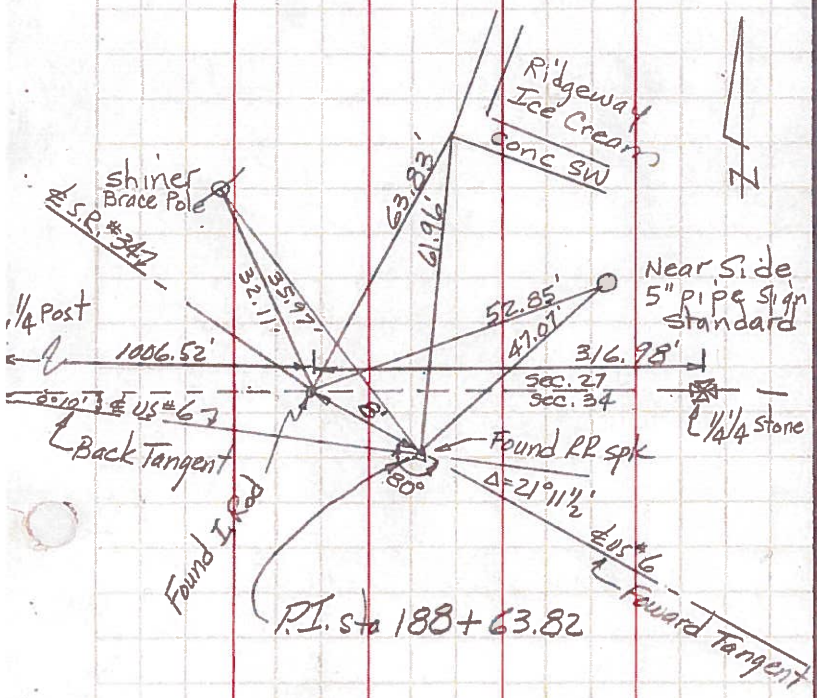 Ridgeway
Ice Cream
Conc SW
Z
shiner
Brace Pole
℄ S.R. #347
63.83'
61.96'
32.11'
35.97'
Near Side
5" pipe sign
standard
52.85'
47.07'
1/4 Post
1006.52'
316.98'
Sec. 27
Sec. 34
1/4 1/4 Stone
℄ US #6
Back Tangent
8'
Found RR spk
80°
Δ=21°11½'
Found I. Rod
℄ US #6
Foward Tangent
P.I. sta 188+63.82